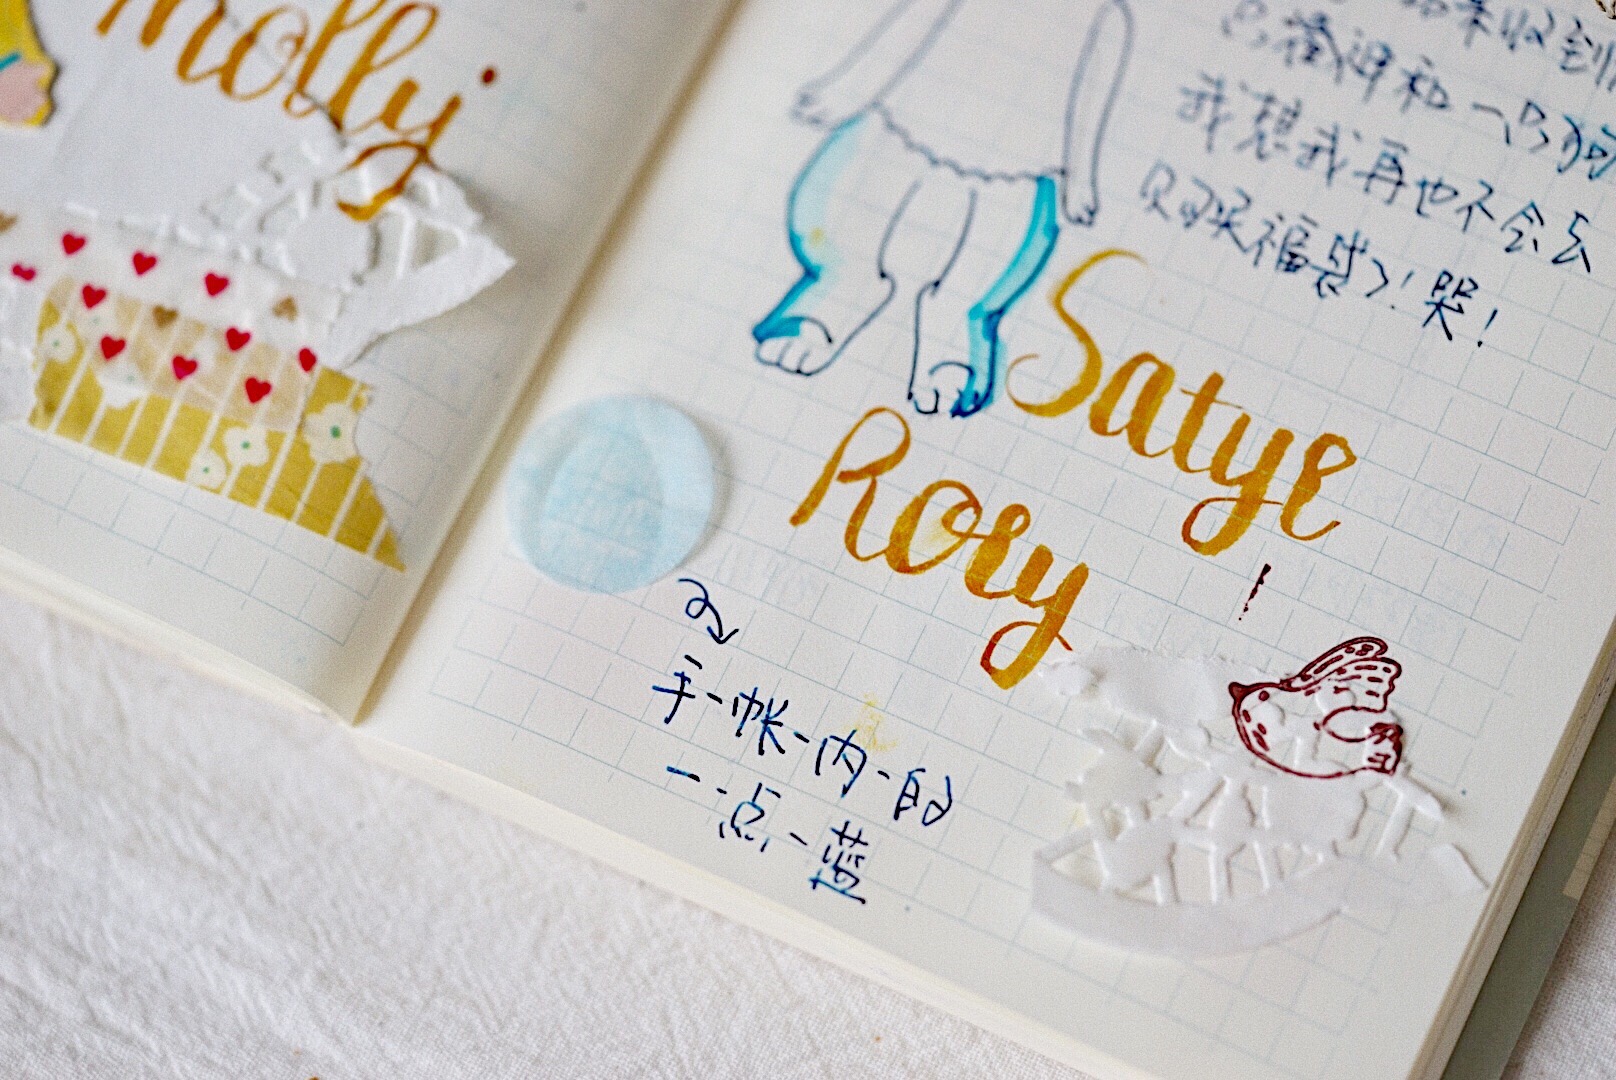 molly
收到
和一只
我想我再也不会去
只可哭福袋了！哭！
Satye
Rory
!
手-帐-内-的
一-点-蓝